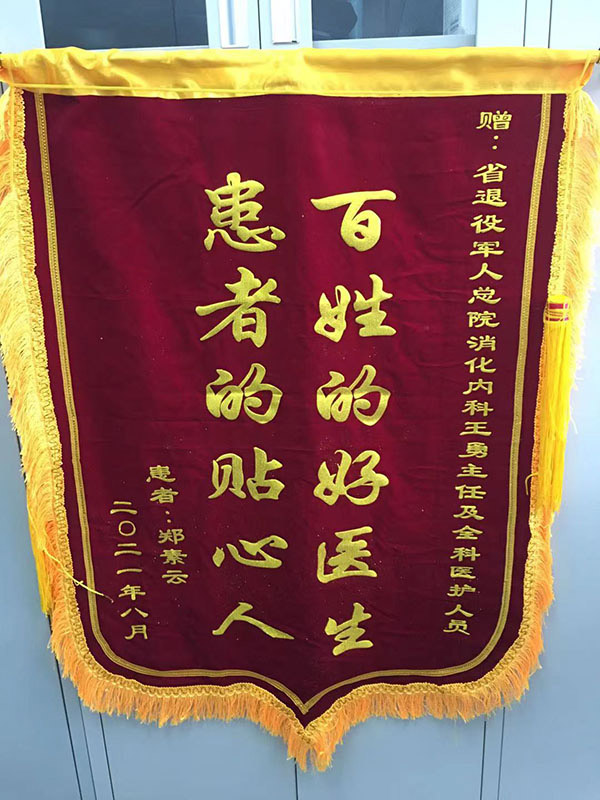 赠：省退役军人总院消化内科王勇主任及全科医护人员
百姓的好医生
患者的贴心人
患者：郑素云
二〇二一年八月